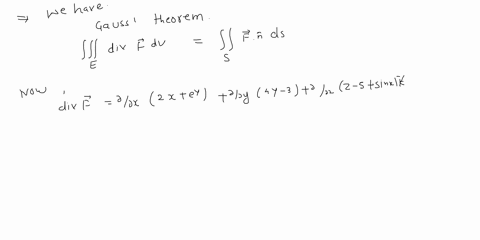 ⇒ We have.
Gauss' theorem.
∭_E div F⃗ dv = ∬_S F⃗.n̄ ds
Now,
div F⃗ = ∂/∂x (2x+e^y) + ∂/∂y (4y-3) + ∂/∂z (z-5+sinx)